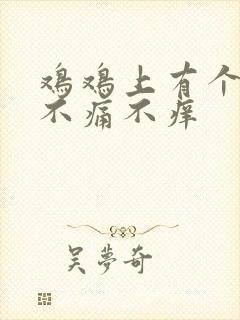 鸡鸡上有个
不痛不痒
吴梦奇